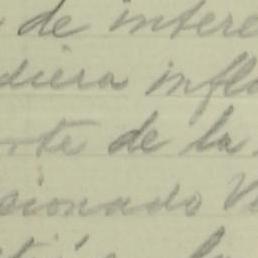 de intere
diera infl
rte de la
cionado V